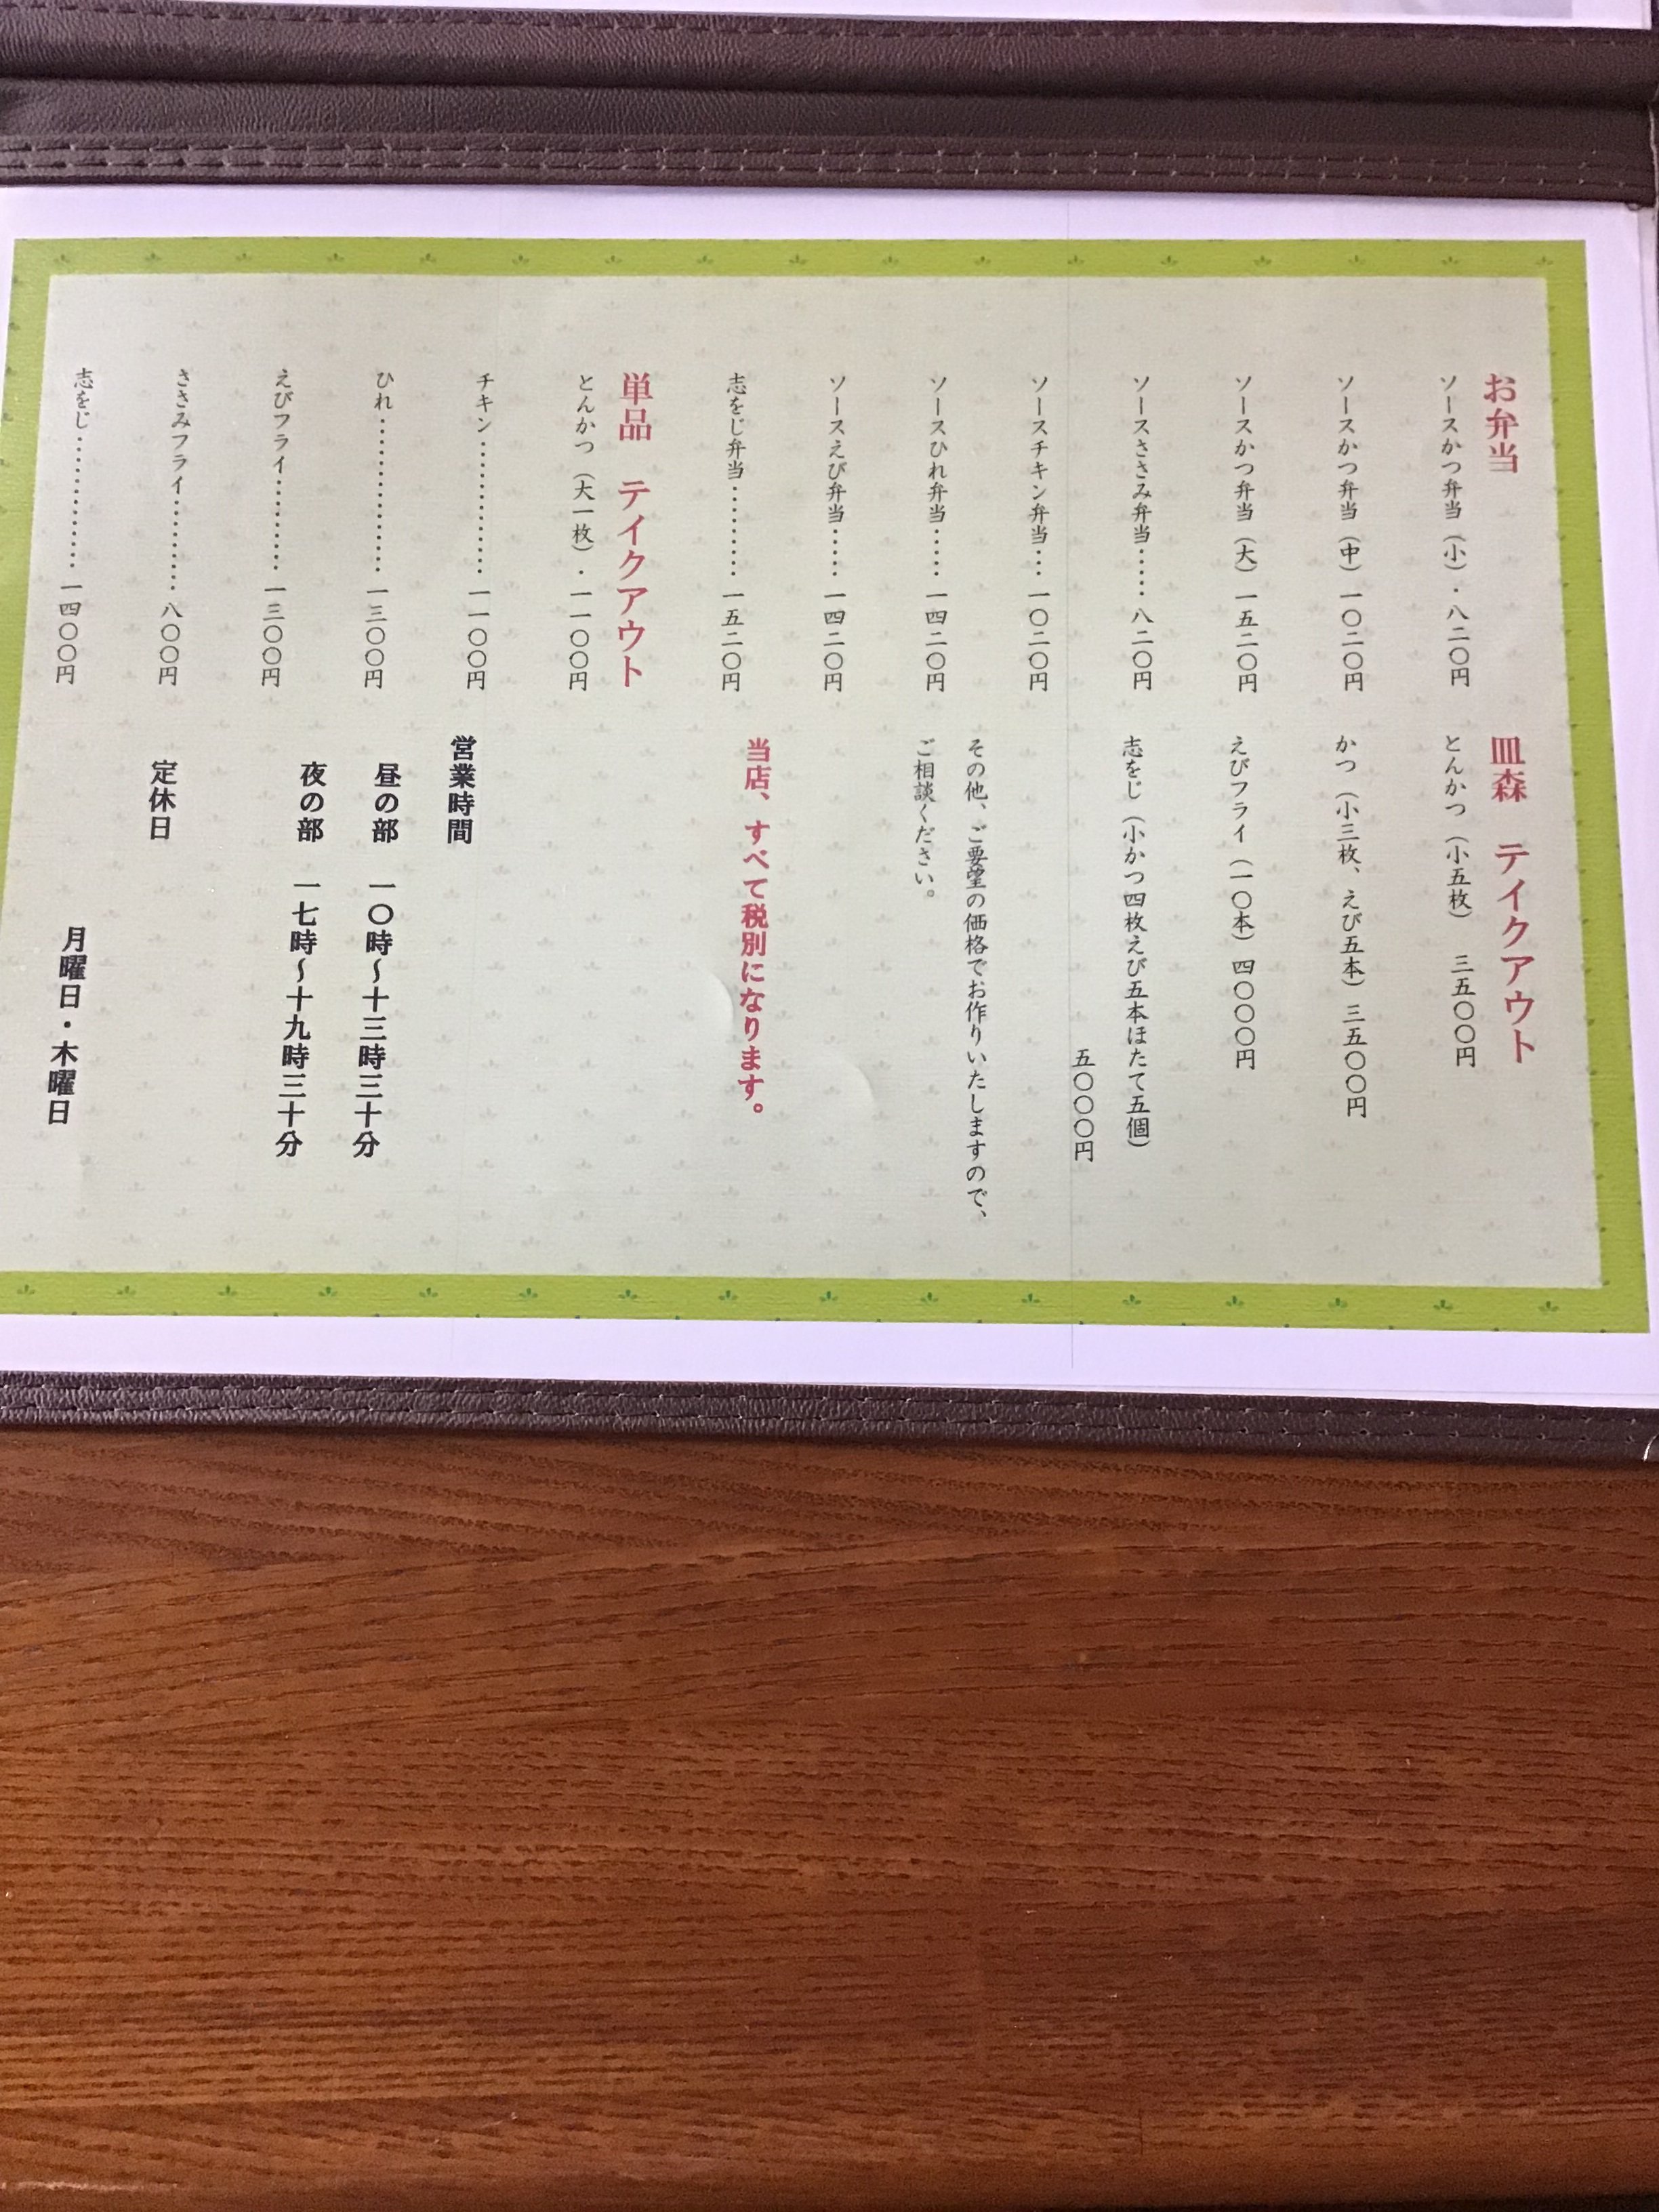 お弁当
ソースかつ弁当（小）・八二〇円
ソースかつ弁当（中）一〇二〇円
ソースかつ弁当（大）一五二〇円
ソースささみ弁当・・・・・八二〇円
ソースチキン弁当・・・一〇二〇円
ソースひれ弁当・・・・・一四二〇円
ソースえび弁当・・・・・一四二〇円
志をじ弁当・・・・・・・・・一五二〇円
単品　テイクアウト
とんかつ（大一枚）・一一〇〇円
チキン・・・・・・・・・・・・・一一〇〇円
ひれ・・・・・・・・・・・・・・・一三〇〇円
えびフライ・・・・・・・・・一三〇〇円
ささみフライ・・・・・・・・・八〇〇円
志をじ・・・・・・・・・・・・・一四〇〇円
皿森　テイクアウト
とんかつ（小五枚）　三五〇〇円
かつ（小三枚、えび五本）三五〇〇円
えびフライ（一〇本）四〇〇〇円
志をじ（小かつ四枚えび五本ほたて五個）
五〇〇〇円
その他、ご要望の価格でお作りいたしますので、
ご相談ください。
当店、すべて税別になります。
営業時間
昼の部　一〇時～十三時三十分
夜の部　一七時～十九時三十分
定休日
月曜日・木曜日